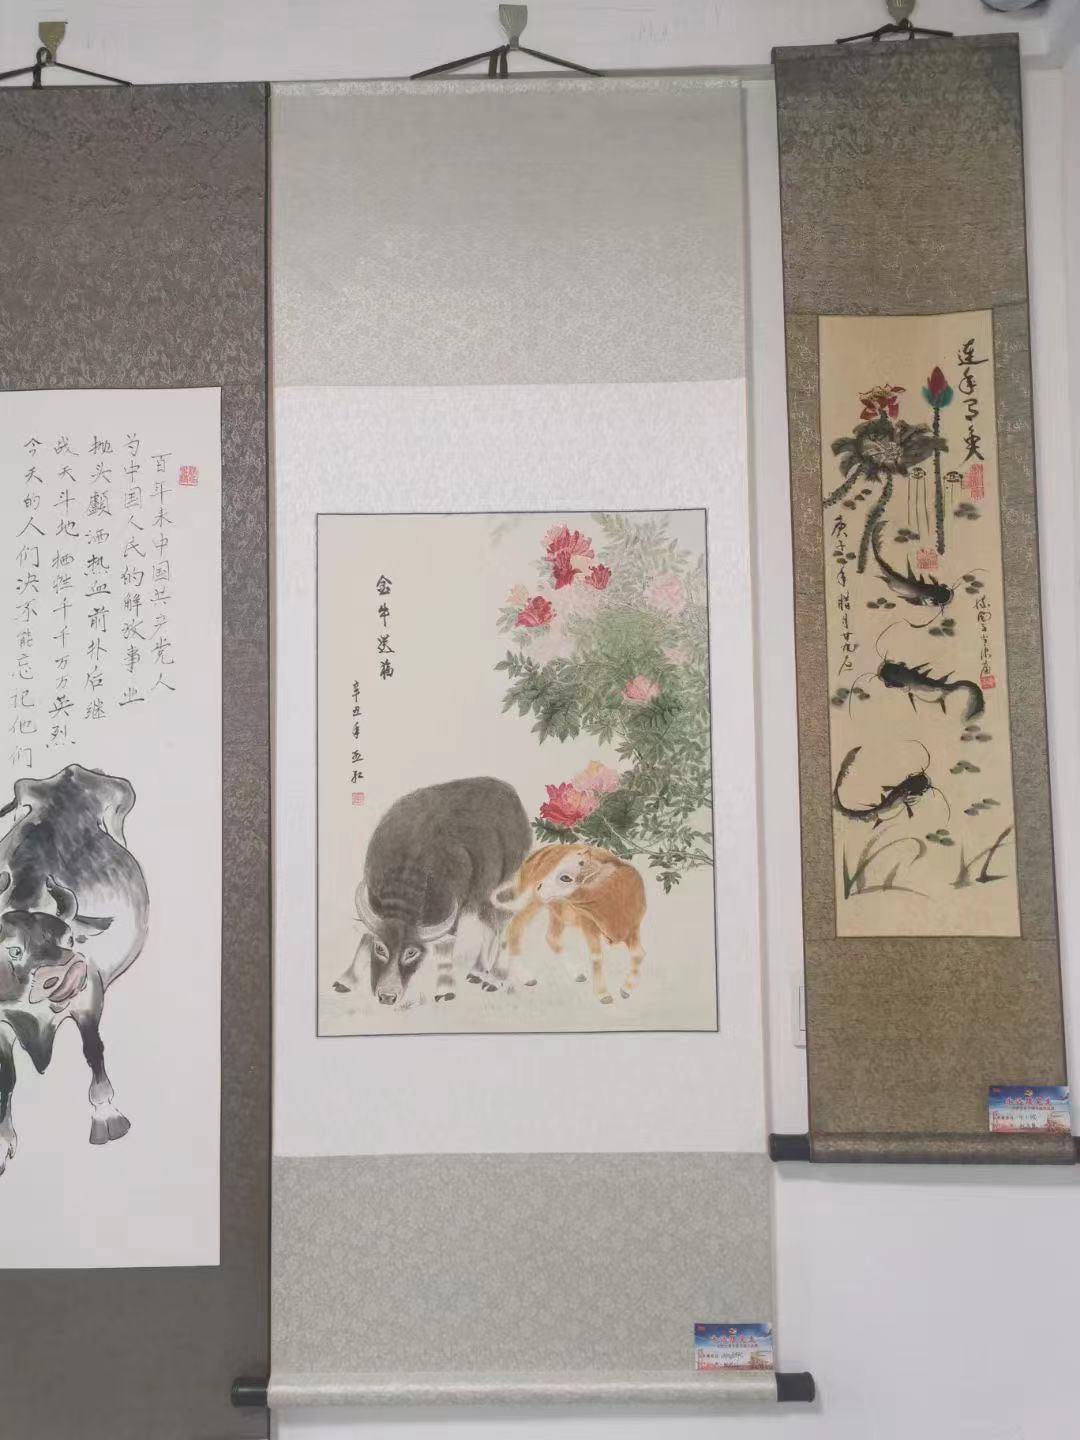 百年来中国共产党人
为中国人民的解放事业
抛头颅洒热血前扑后继
战天斗地牺牲千千万万英烈
今天的人们决不能忘记他们
金牛送福
辛丑年 亚红
连年有余
庚子年腊月廿九
永远跟党走
永远跟党走